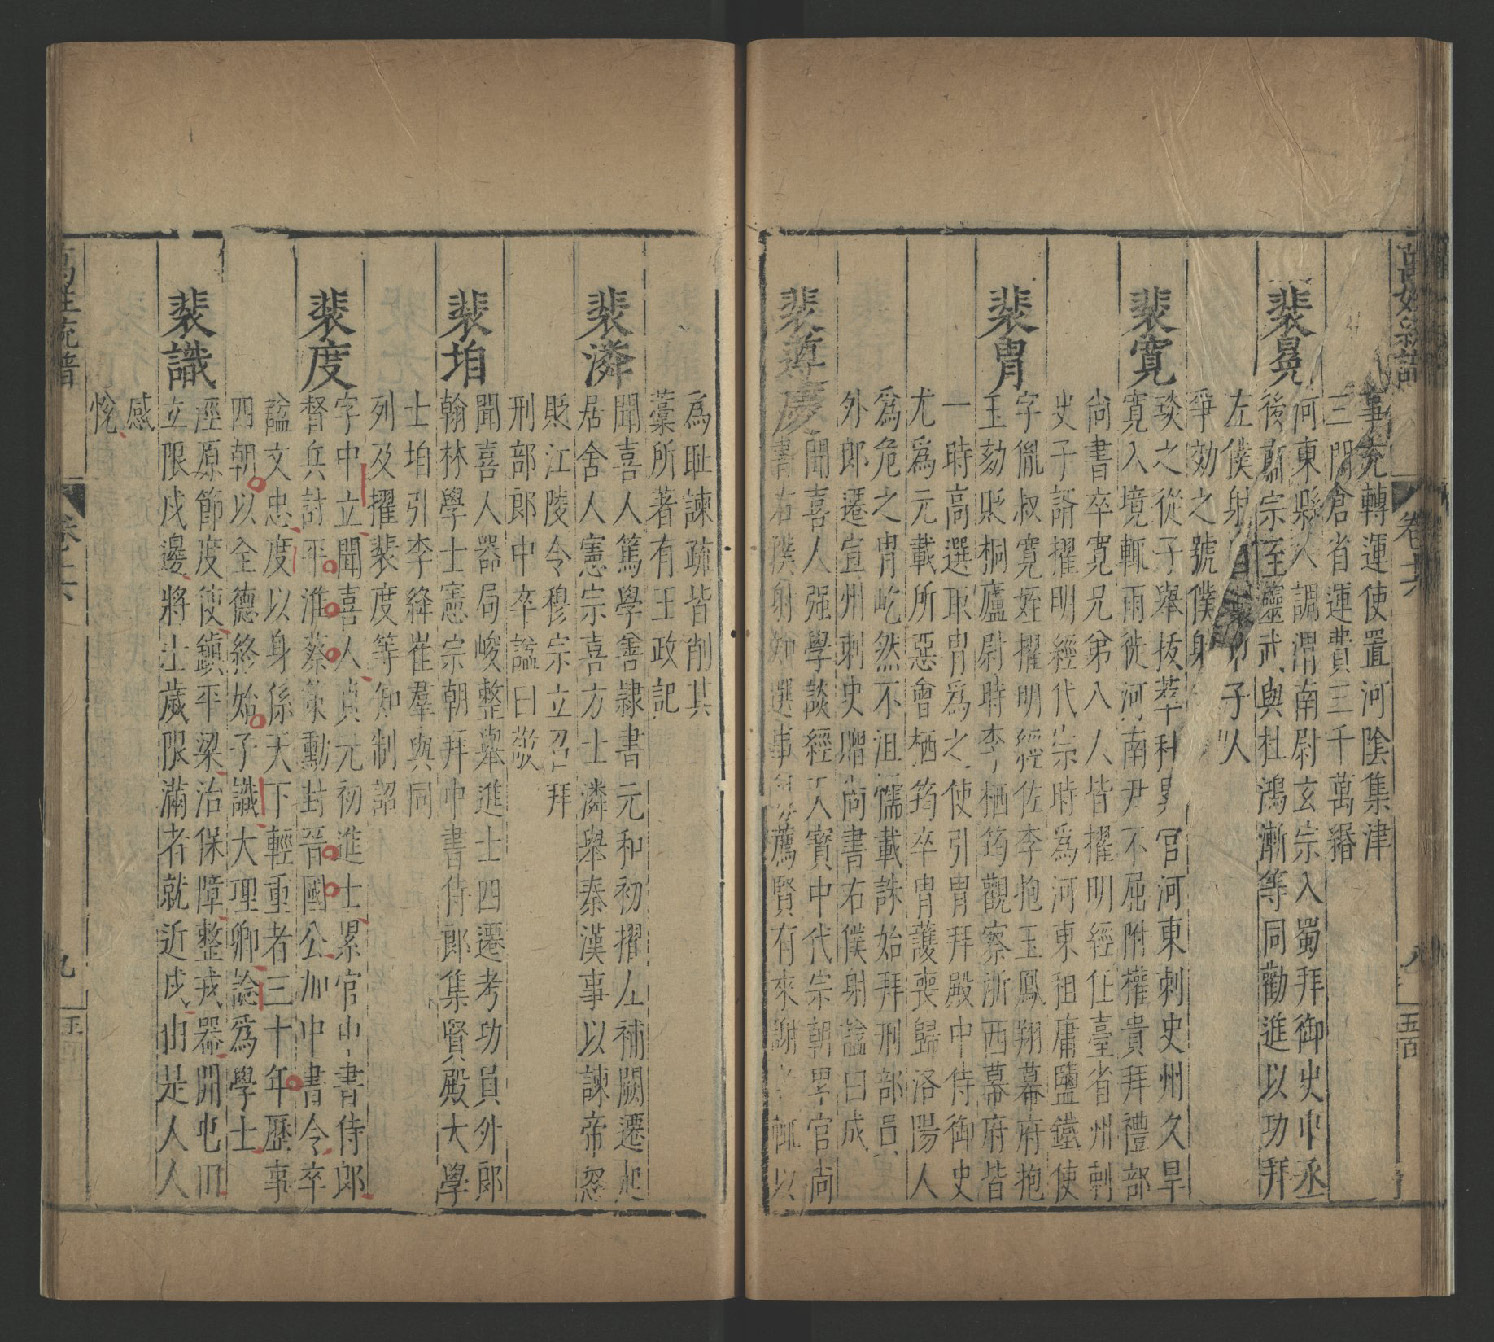 萬姓統譜
卷十六
八
五百
事充轉運使置河陰集津
三門倉省運費三千萬緡
裴冕
河東縣人調渭南尉玄宗入蜀拜御史中丞
後肅宗至靈武與杜鴻漸等同勸進以功拜
左僕射 子人
爭効之號僕射
裴寬
琰之從子舉拔萃科異官河東刺史州久旱
寬入境輒雨徙河南尹不屈附權貴拜禮部
尚書卒寬兄弟八人皆擢明經任臺省州刺
史子諝擢明經代宗時爲河東租庸鹽鐵使
裴冑
字胤叔寬姪擢明經佐李抱玉鳳翔幕府抱
玉劾貶桐廬尉時李栖筠觀察浙西幕府皆
一時高選取冑爲之使引冑拜殿中侍御史
尤爲元載所惡會栖筠卒冑護喪歸洛陽人
爲危之冑屹然不沮懦載誅始拜刑部員
外郎遷宣州刺史贈尚書右僕射諡曰成
裴遵慶
聞喜人强學談經天寶中代宗朝累官尚
書右僕射知選事 薦賢有來謝者輒以
爲耻諫疏皆削其
藁所著有王政記
裴潾
聞喜人篤學善隷書元和初擢左補闕遷起
居舍人憲宗喜方士潾舉秦漢事以諫帝怒
貶江陵令穆宗立召拜
刑部郎中卒諡曰敬
裴垍
聞喜人器局峻整舉進士四遷考功員外郎
翰林學士憲宗朝拜中書侍郎集賢殿大學
士垍引李絳崔羣與同
列及擢裴度等知制詔
裴度
字中立聞喜人貞元初進士累官中書侍郎
督兵討平淮蔡策勳封晉國公加中書令卒
諡文忠度以身係天下輕重者三十年歷事
四朝以全德終始子識大理卿諗爲學士
裴識
涇原節度使鎮平梁治保障整戎器開屯田
立限戍邊將士歲限滿者就近戍由是人人
感
悅
萬姓統譜
卷十六
九
五百